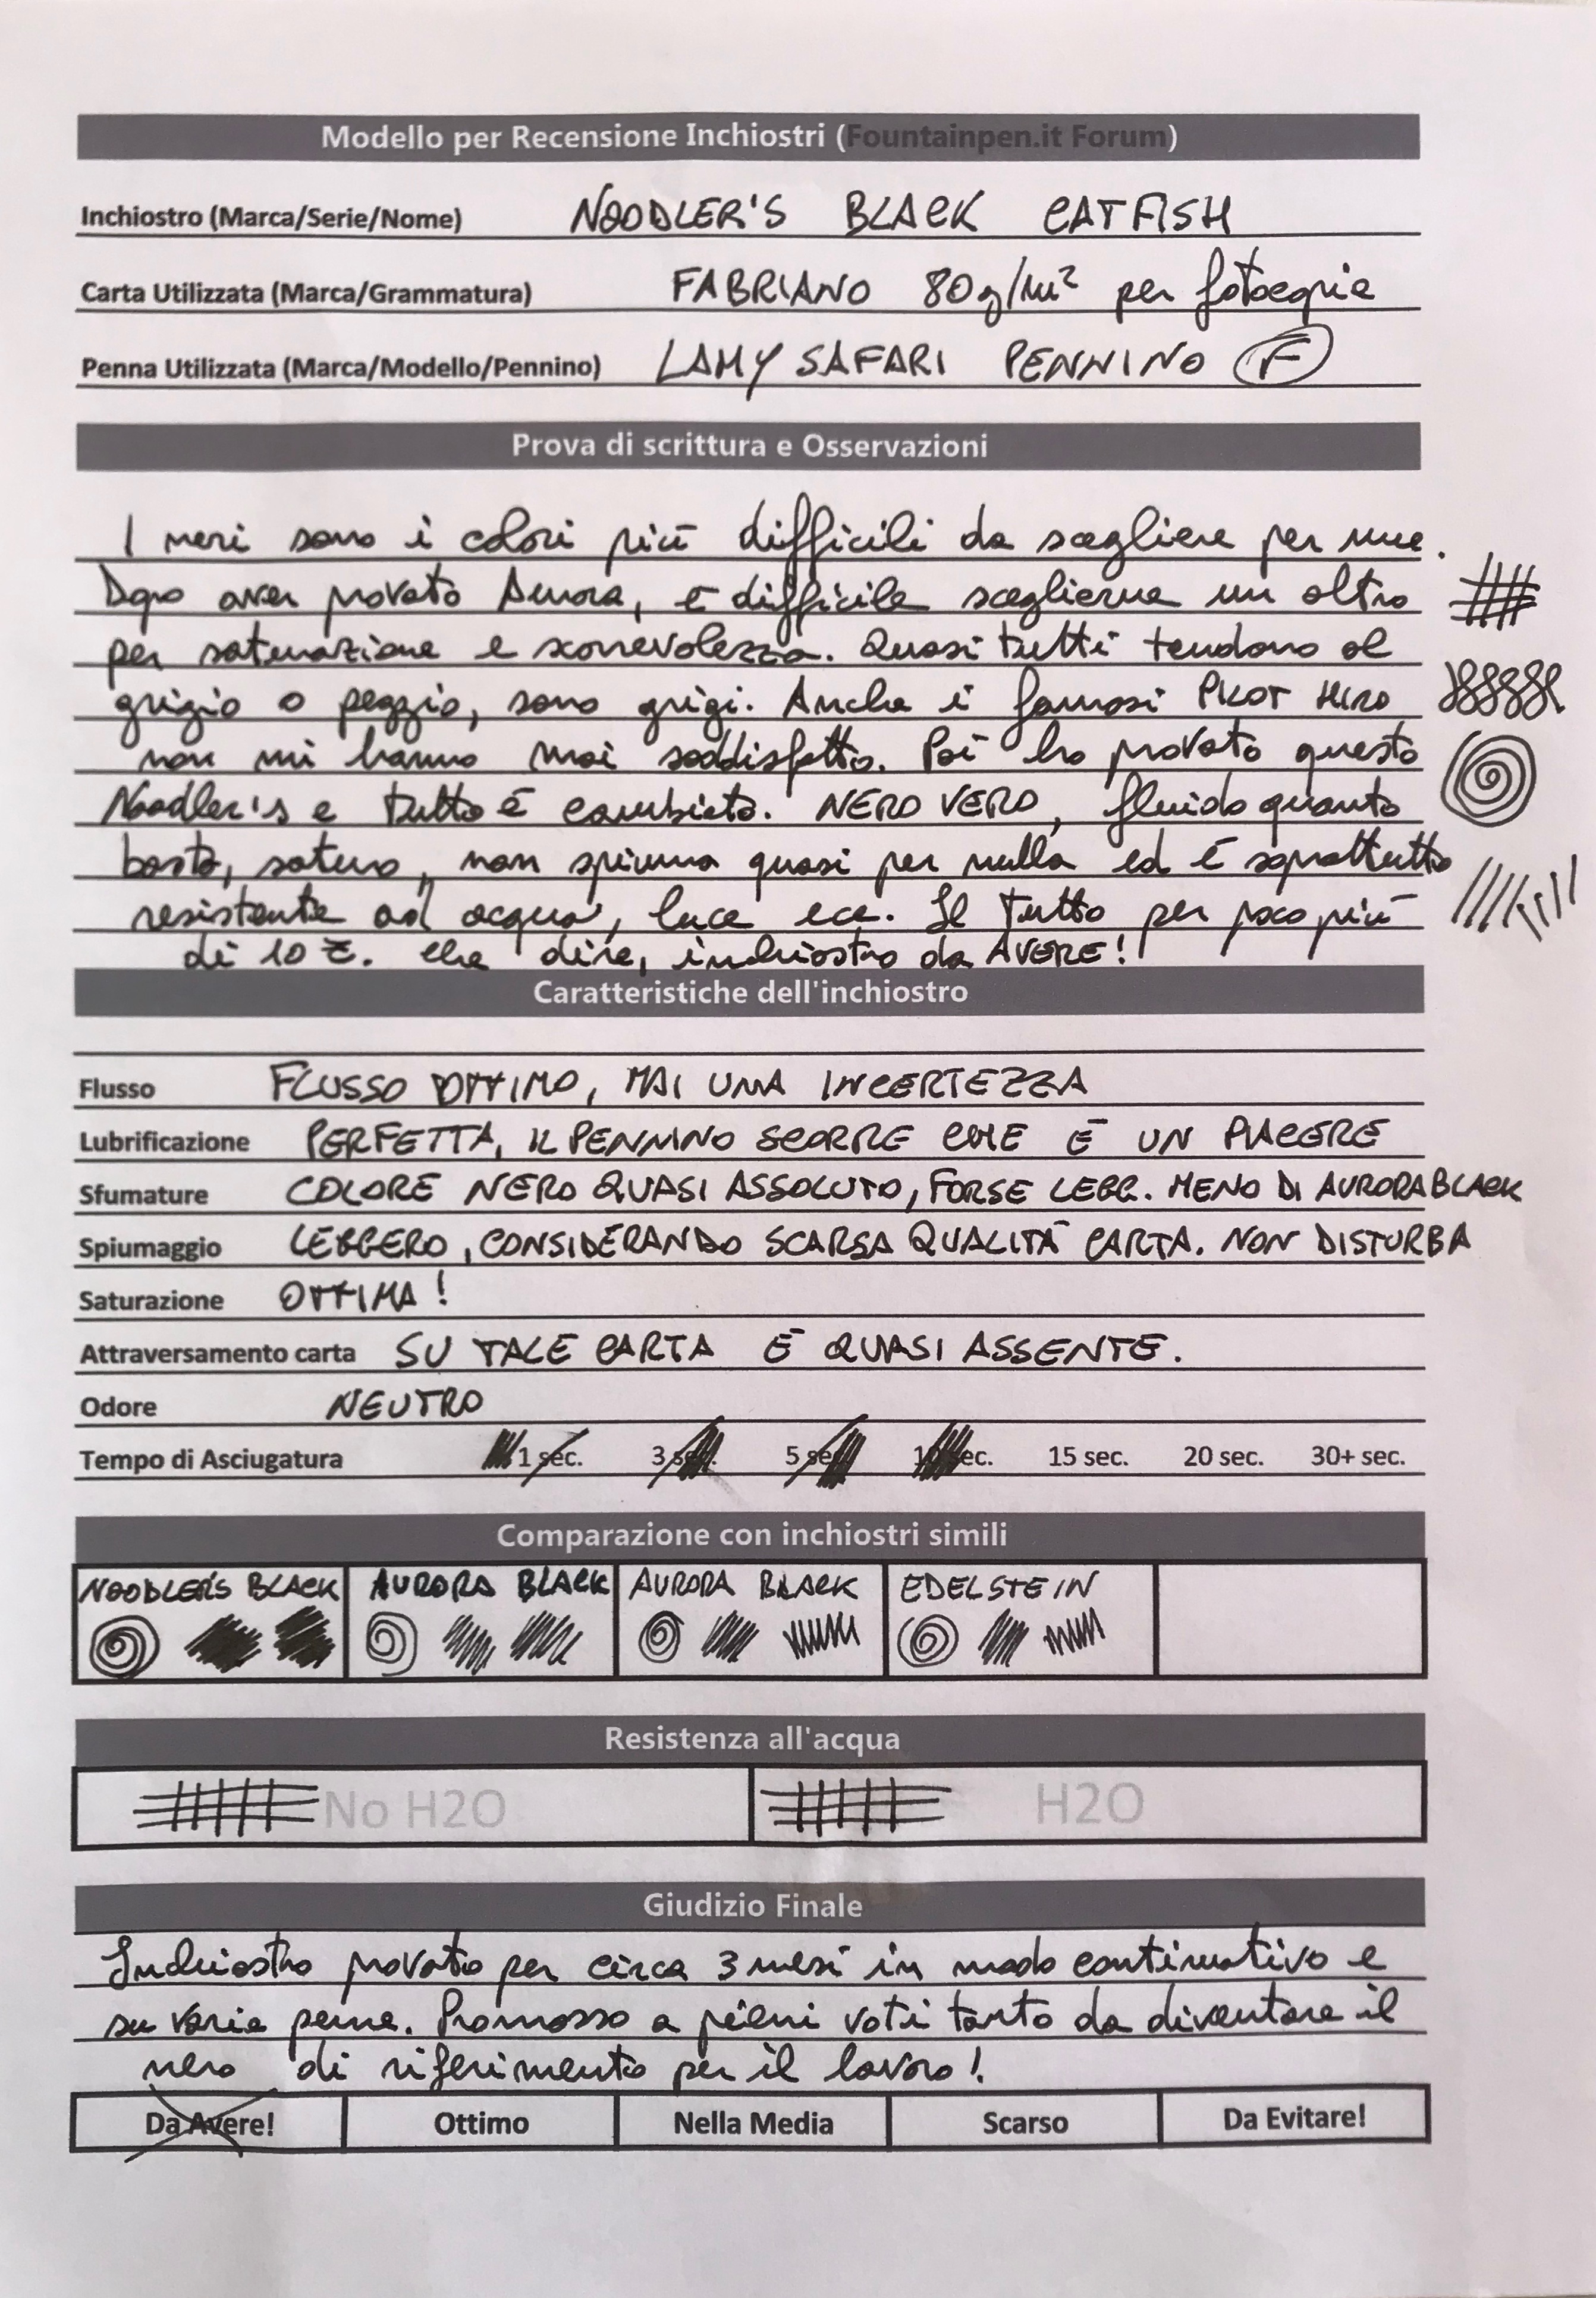 Modello per Recensione Inchiostri (Fountainpen.it Forum)
Inchiostro (Marca/Serie/Nome) NOODLER'S BLACK CATFISH
Carta Utilizzata (Marca/Grammatura) FABRIANO 80g/m² per fotocopie
Penna Utilizzata (Marca/Modello/Pennino) LAMY SAFARI PENNINO F
Prova di scrittura e Osservazioni
I neri sono i colori più difficili da scegliere per me.
Dopo aver provato Aurora, è difficile sceglierne un altro
per saturazione e scorrevolezza. Quasi tutti tendono al
grigio o peggio, sono grigi. Anche i famosi PILOT HIRO
non mi hanno mai soddisfatto. Poi ho provato questo
Noodler's e tutto è cambiato. NERO VERO, fluido quanto
basta, saturo, non spiuma quasi per nulla ed è soprattutto
resistente ad "acqua", luce ecc. Il tutto per poco più
di 10 €. Che dire, inchiostro da AVERE!
Caratteristiche dell'inchiostro
Flusso FLUSSO OTTIMO, MAI UNA INCERTEZZA
Lubrificazione PERFETTA, IL PENNINO SCORRE CHE È UN PIACERE
Sfumature COLORE NERO QUASI ASSOLUTO, FORSE LEGG. MENO DI AURORA BLACK
Spiumaggio LEGGERO, CONSIDERANDO SCARSA QUALITÀ CARTA. NON DISTURBA
Saturazione OTTIMA!
Attraversamento carta SU TALE CARTA È QUASI ASSENTE.
Odore NEUTRO
Tempo di Asciugatura 1 sec. 3 sec. 5 sec. 10 sec. 15 sec. 20 sec. 30+ sec.
Comparazione con inchiostri simili
NOODLER'S BLACK AURORA BLACK AURORA BLACK EDELSTEIN
Resistenza all'acqua
No H2O H2O
Giudizio Finale
Inchiostro provato per circa 3 mesi in modo continuativo e
su varie penne. Promosso a pieni voti tanto da diventare il
nero di riferimento per il lavoro!
Da Avere! Ottimo Nella Media Scarso Da Evitare!